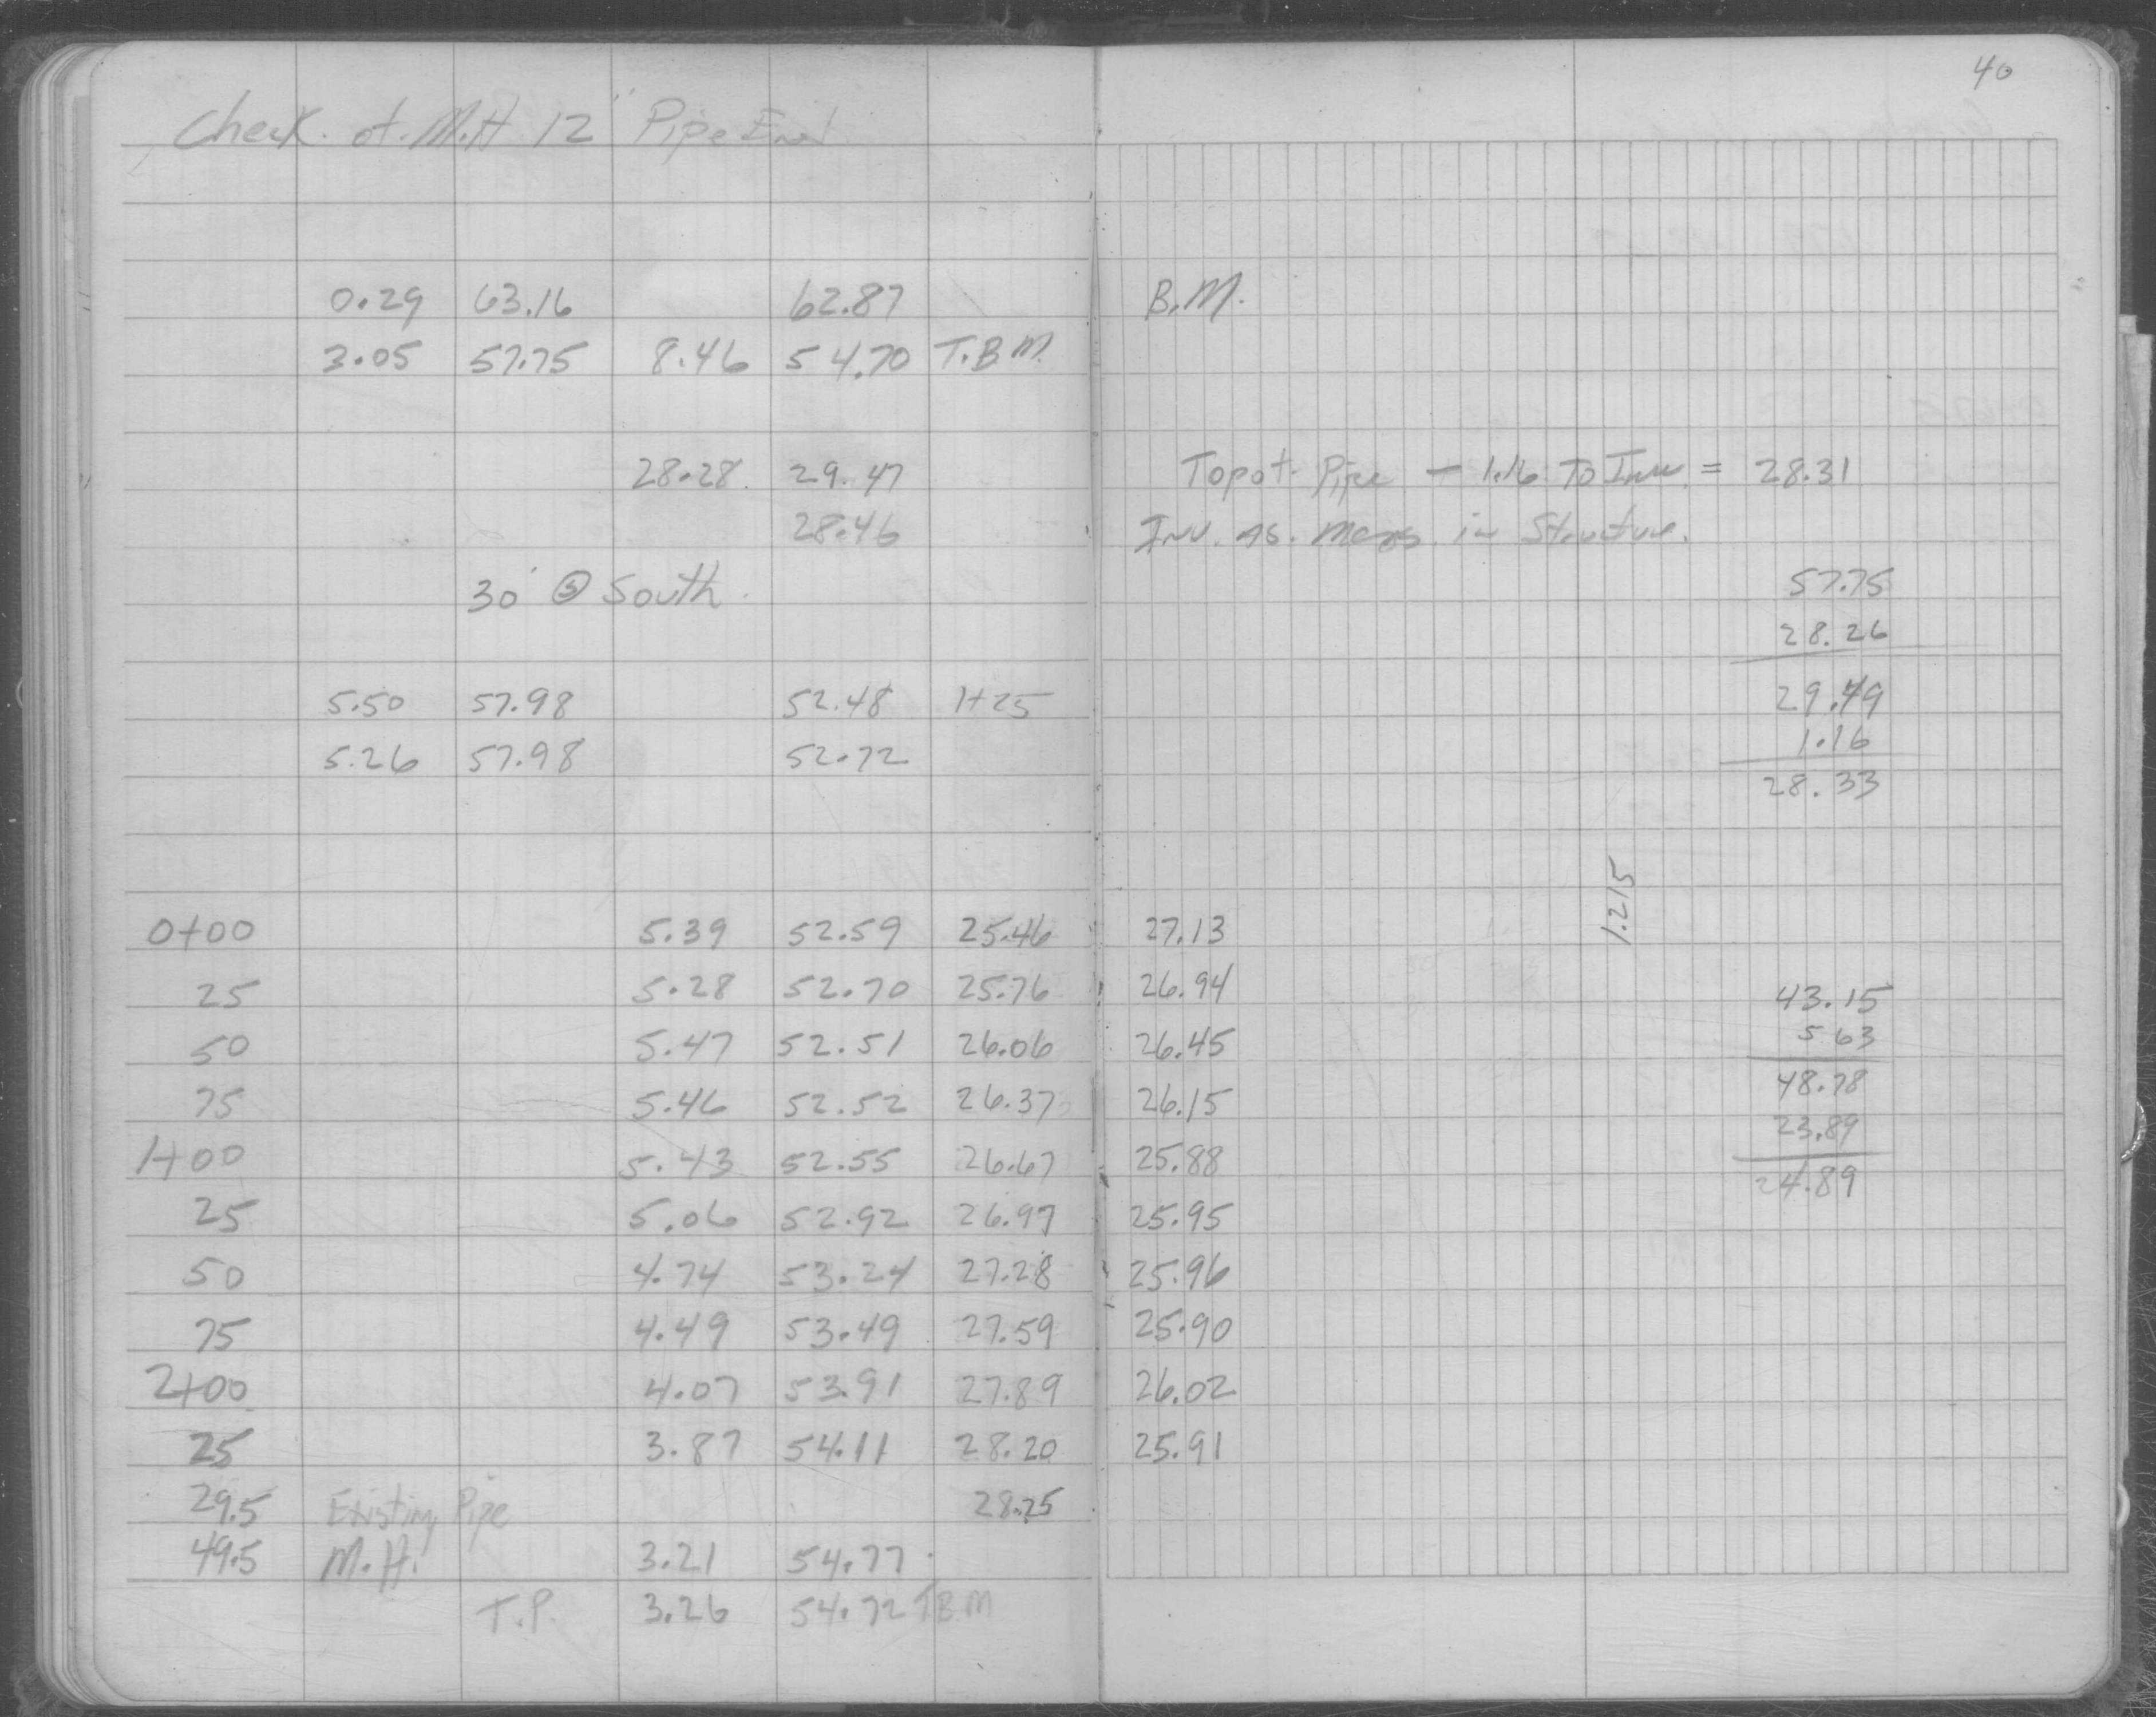 40
Check. of. M.H 12" Pipe End
0.29 63.16 62.87 B.M.
3.05 57.75 8.46 54.70 T.B.M.
28.28 29.47 Top of Pipe - 1.16 To Inv. = 28.31
28.46 Inv. as. meas. in Structure.
30' @ South.
57.75
28.26
29.49
1.16
28.33
5.50 57.98 52.48 1+25
5.26 57.98 52.72
1.215
0+00 5.39 52.59 25.46 27.13
25 5.28 52.70 25.76 26.94
50 5.47 52.51 26.06 26.45
75 5.46 52.52 26.37 26.15
1+00 5.43 52.55 26.67 25.88
25 5.06 52.92 26.97 25.95
50 4.74 53.24 27.28 25.96
75 4.49 53.49 27.59 25.90
2+00 4.07 53.91 27.89 26.02
25 3.87 54.11 28.20 25.91
29.5 Existing Pipe 28.25
49.5 M.H. 3.21 54.77
T.P. 3.26 54.72 T.B.M
43.15
5.63
48.78
23.89
24.89